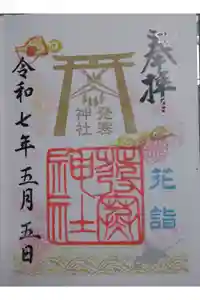 奉拝
発寒
神社
花詣
発寒神社
令和七年五月五日